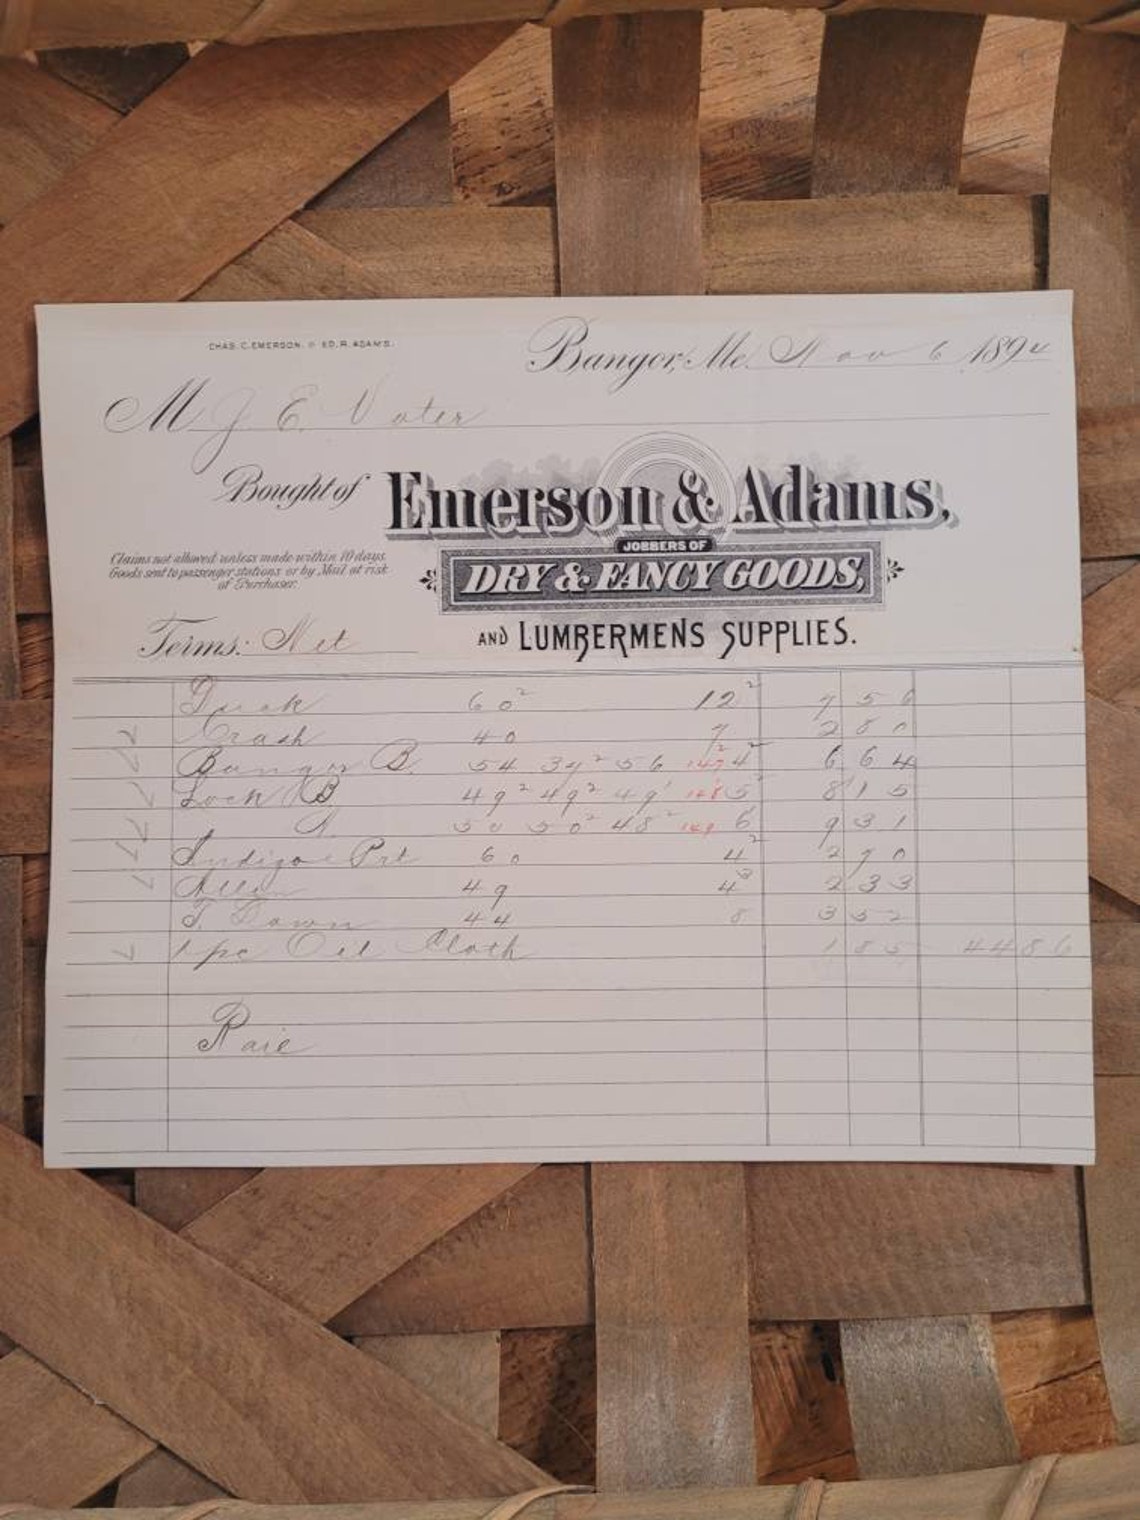 CHAS. C. EMERSON. ED. R. ADAMS.
Bangor, Me. Nov 6 1894
M J. E. Vater
Bought of Emerson & Adams,
JOBBERS OF
DRY & FANCY GOODS,
AND LUMBERMENS SUPPLIES.
Claims not allowed unless made within 10 days.
Goods sent to passenger stations or by Mail at risk
of Purchaser.
Terms: Net
Duck 60² 12² 7 56
Crash 40 7 2 80
Bangor B. 54 39² 56 147² 4² 6 64
Lock B 49² 49² 49' 148 5² 8 15
A. 50 50² 48² 149 6² 9 31
Indigo Prt 60 4² 2 70
Allen 49 4³ 2 33
T. Down 44 8 3 52
1 pc Oil Cloth 1 85 44 86